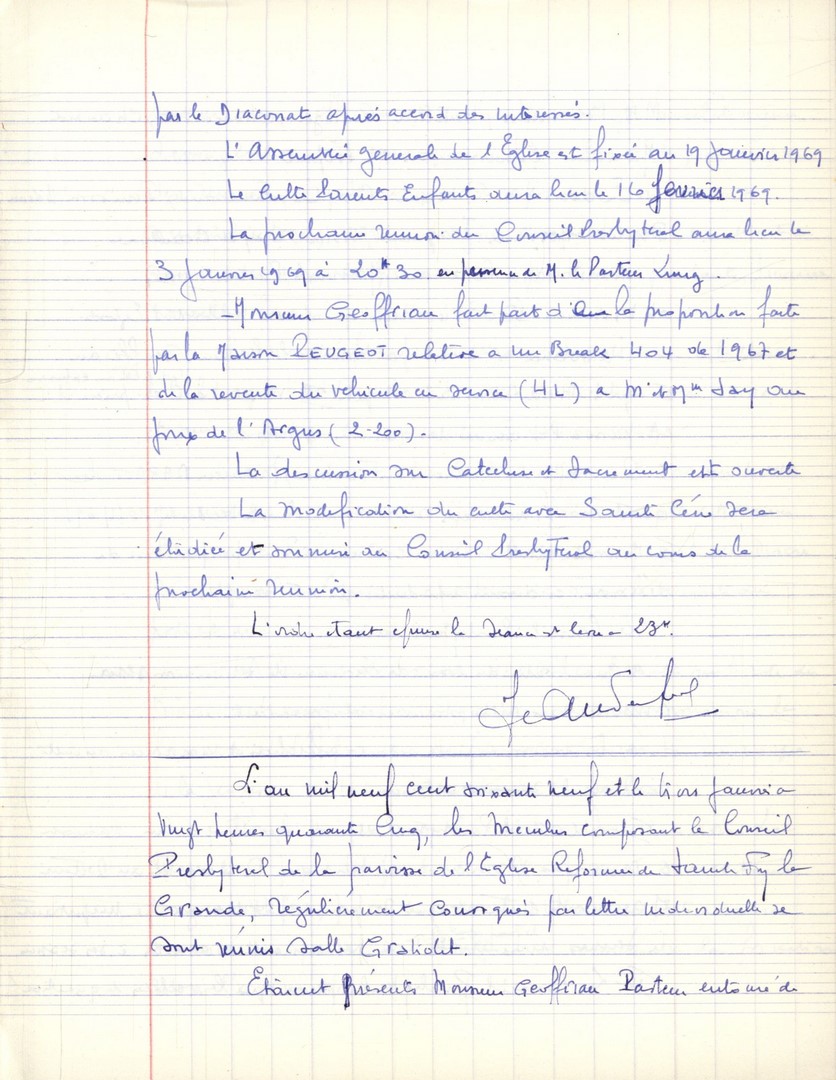 par le Diaconat après accord des intéressés.
L'Assemblée générale de l'Eglise est fixée au 19 Janvier 1969
Le culte Parents Enfants aura lieu le 16 1969.
La prochaine réunion du Conseil Presbytéral aura lieu le
3 Janvier 1969 à 20h30 en présence de M. le Pasteur Lung.
- Monsieur Geoffriau fait part d' la proposition faite
par la Maison PEUGEOT relative a un Break 404 de 1967 et
de la revente du véhicule en service (4L) a Mr et Mme Jay au
prix de l'Argus (2-200).
La discussion sur Catéchèse et Sacrement est ouverte
La modification du culte avec Sainte Cène sera
étudiée et soumise au Conseil Presbytéral au cours de la
prochaine réunion.
L'ordre étant épuisé la séance est levée a 23h.
L'an mil neuf cent soixante neuf et le trois Janvier a
Vingt heures quarante cinq, les Membres composant le Conseil
Presbytéral de la paroisse de l'Eglise Reformée de Sainte Foy la
Grande, régulièrement convoqués par lettre individuelle se
sont réunis salle Gratiolet.
Etaient présents Monsieur Geoffriau Pasteur entouré de